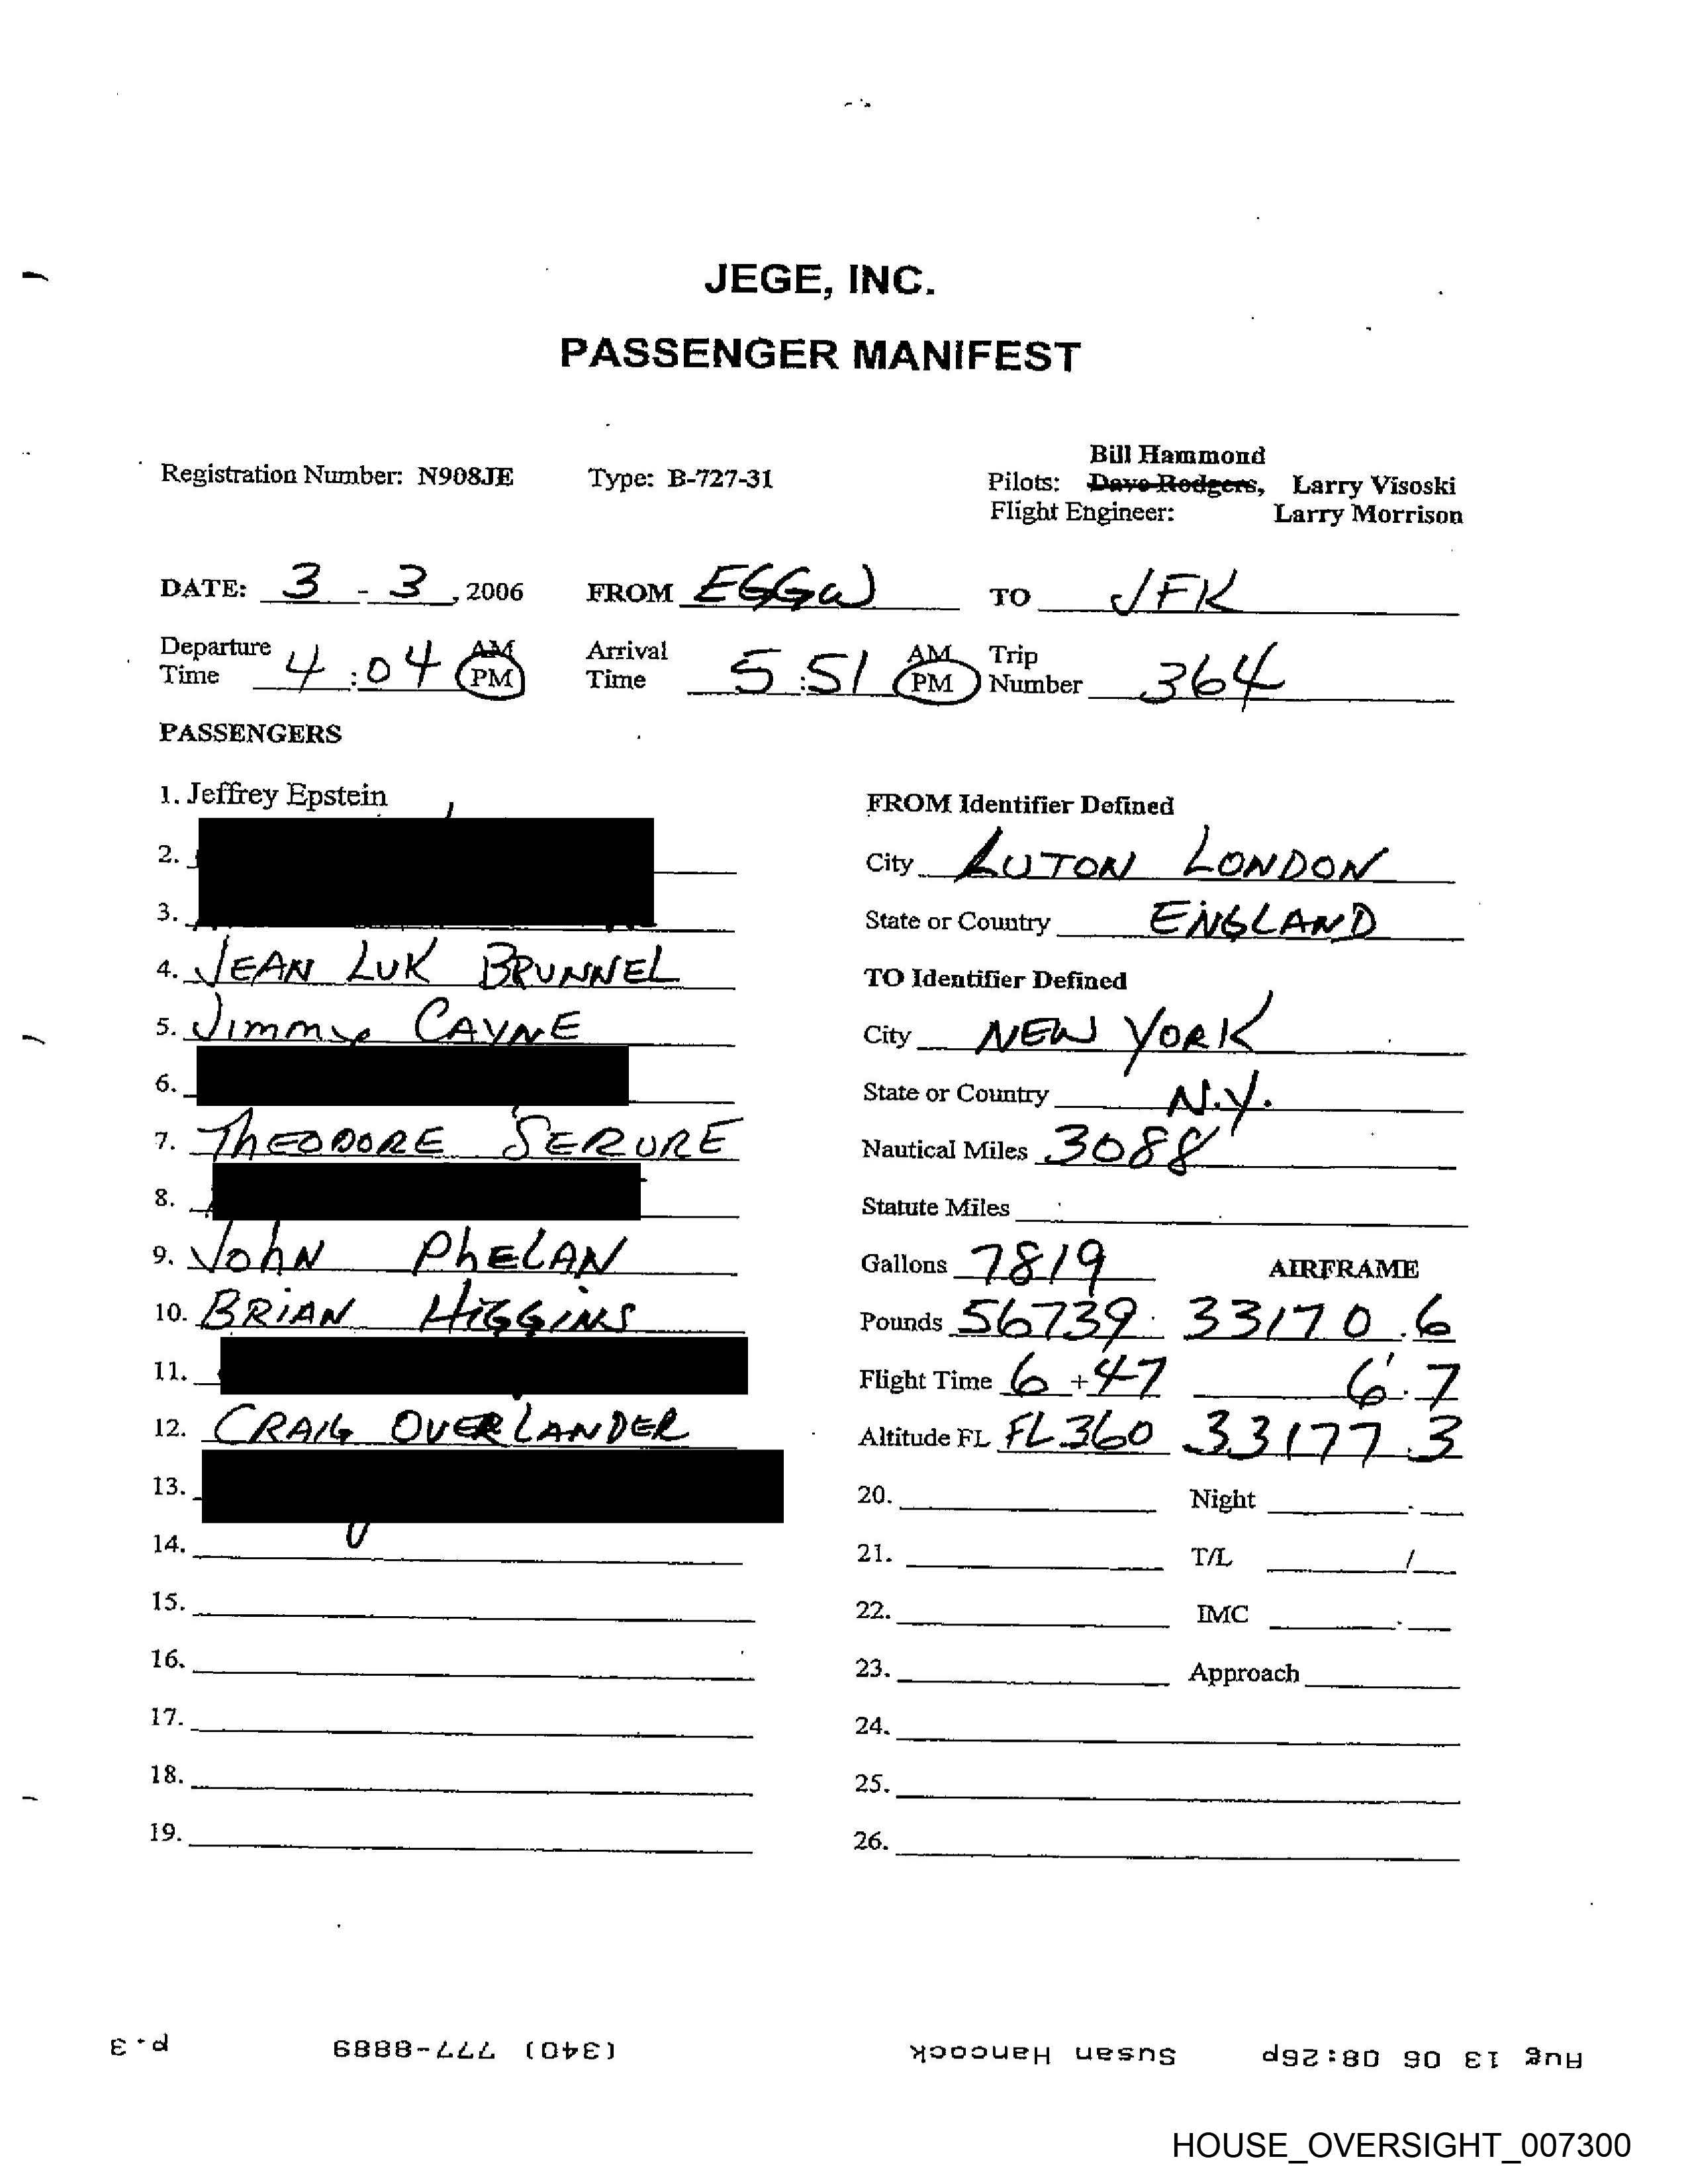 JEGE, INC.
PASSENGER MANIFEST
Bill Hammond
Registration Number: N908JE Type: B-727-31 Pilots: Dave Rodgers, Larry Visoski
Flight Engineer: Larry Morrison
DATE: 3 - 3, 2006 FROM EGGW TO JFK
Departure Time 4:04 AM PM Arrival Time 5:51 AM PM Trip Number 364
PASSENGERS
1. Jeffrey Epstein
2.
3.
4. JEAN LUK BRUNNEL
5. Jimmy CAYNE
6.
7. THEODORE SERURE
8.
9. JOHN PHELAN
10. BRIAN HIGGINS
11.
12. CRAIG OVERLANDER
13.
14.
15.
16.
17.
18.
19.
FROM Identifier Defined
City LUTON LONDON
State or Country ENGLAND
TO Identifier Defined
City NEW YORK
State or Country N.Y.
Nautical Miles 3088
Statute Miles
Gallons 7819 AIRFRAME
Pounds 56739 33170.6
Flight Time 6+47 6.7
Altitude FL FL360 33177.3
20. Night
21. T/L /
22. IMC
23. Approach
24.
25.
26.
Aug 13 06 08:26p Susan Hancock (340) 777-8889 p.3
HOUSE_OVERSIGHT_007300